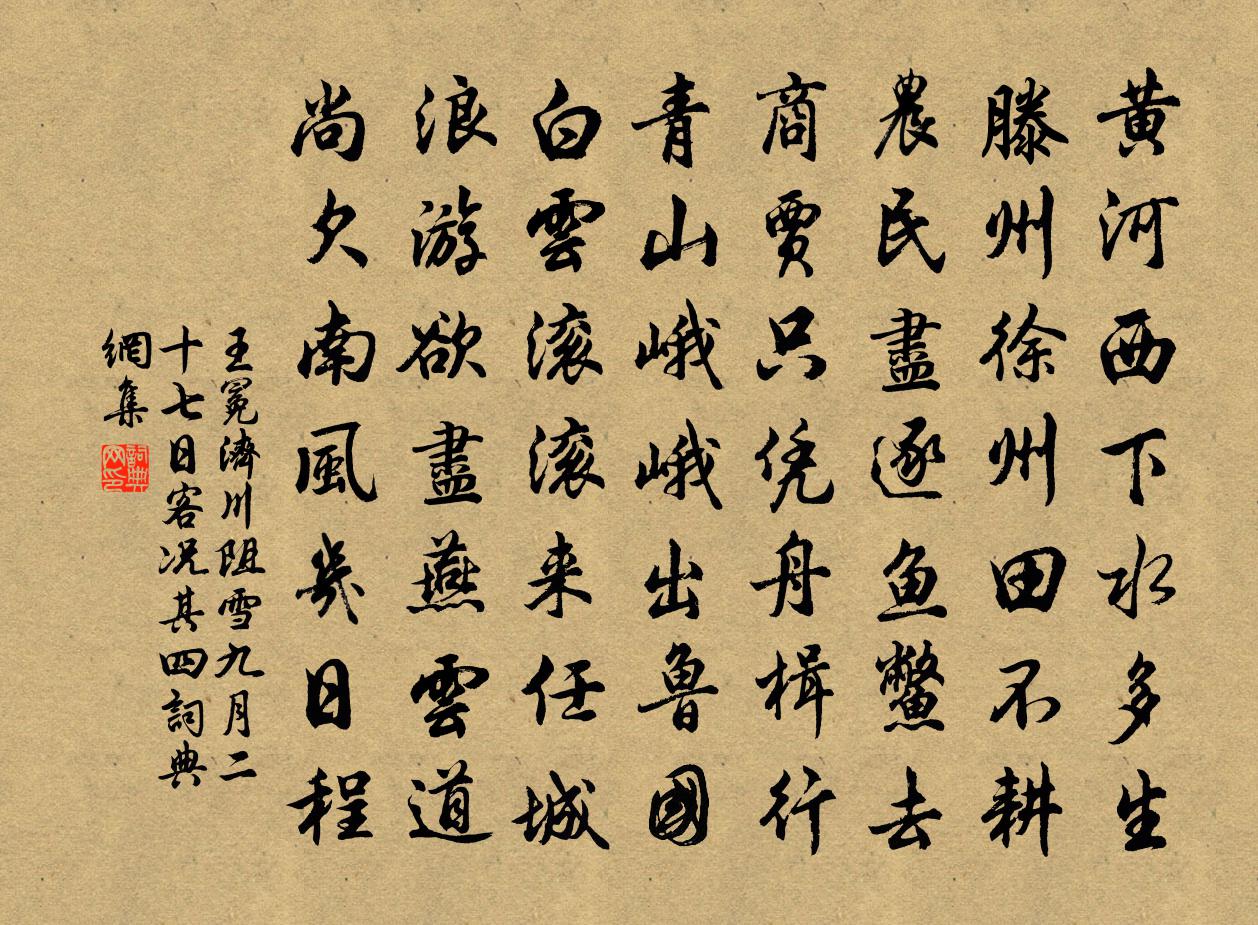 黄河西下水多生
滕州徐州田不耕
農民盡逐鱼鱉去
商賈只凭舟楫行
青山峨峨出魯國
白雲滚滚来任城
浪游欲盡燕雲道
尚欠南風幾日程
王冕濟川阻雪九月二
十七日客况其四詞典
網集
詞典
网印